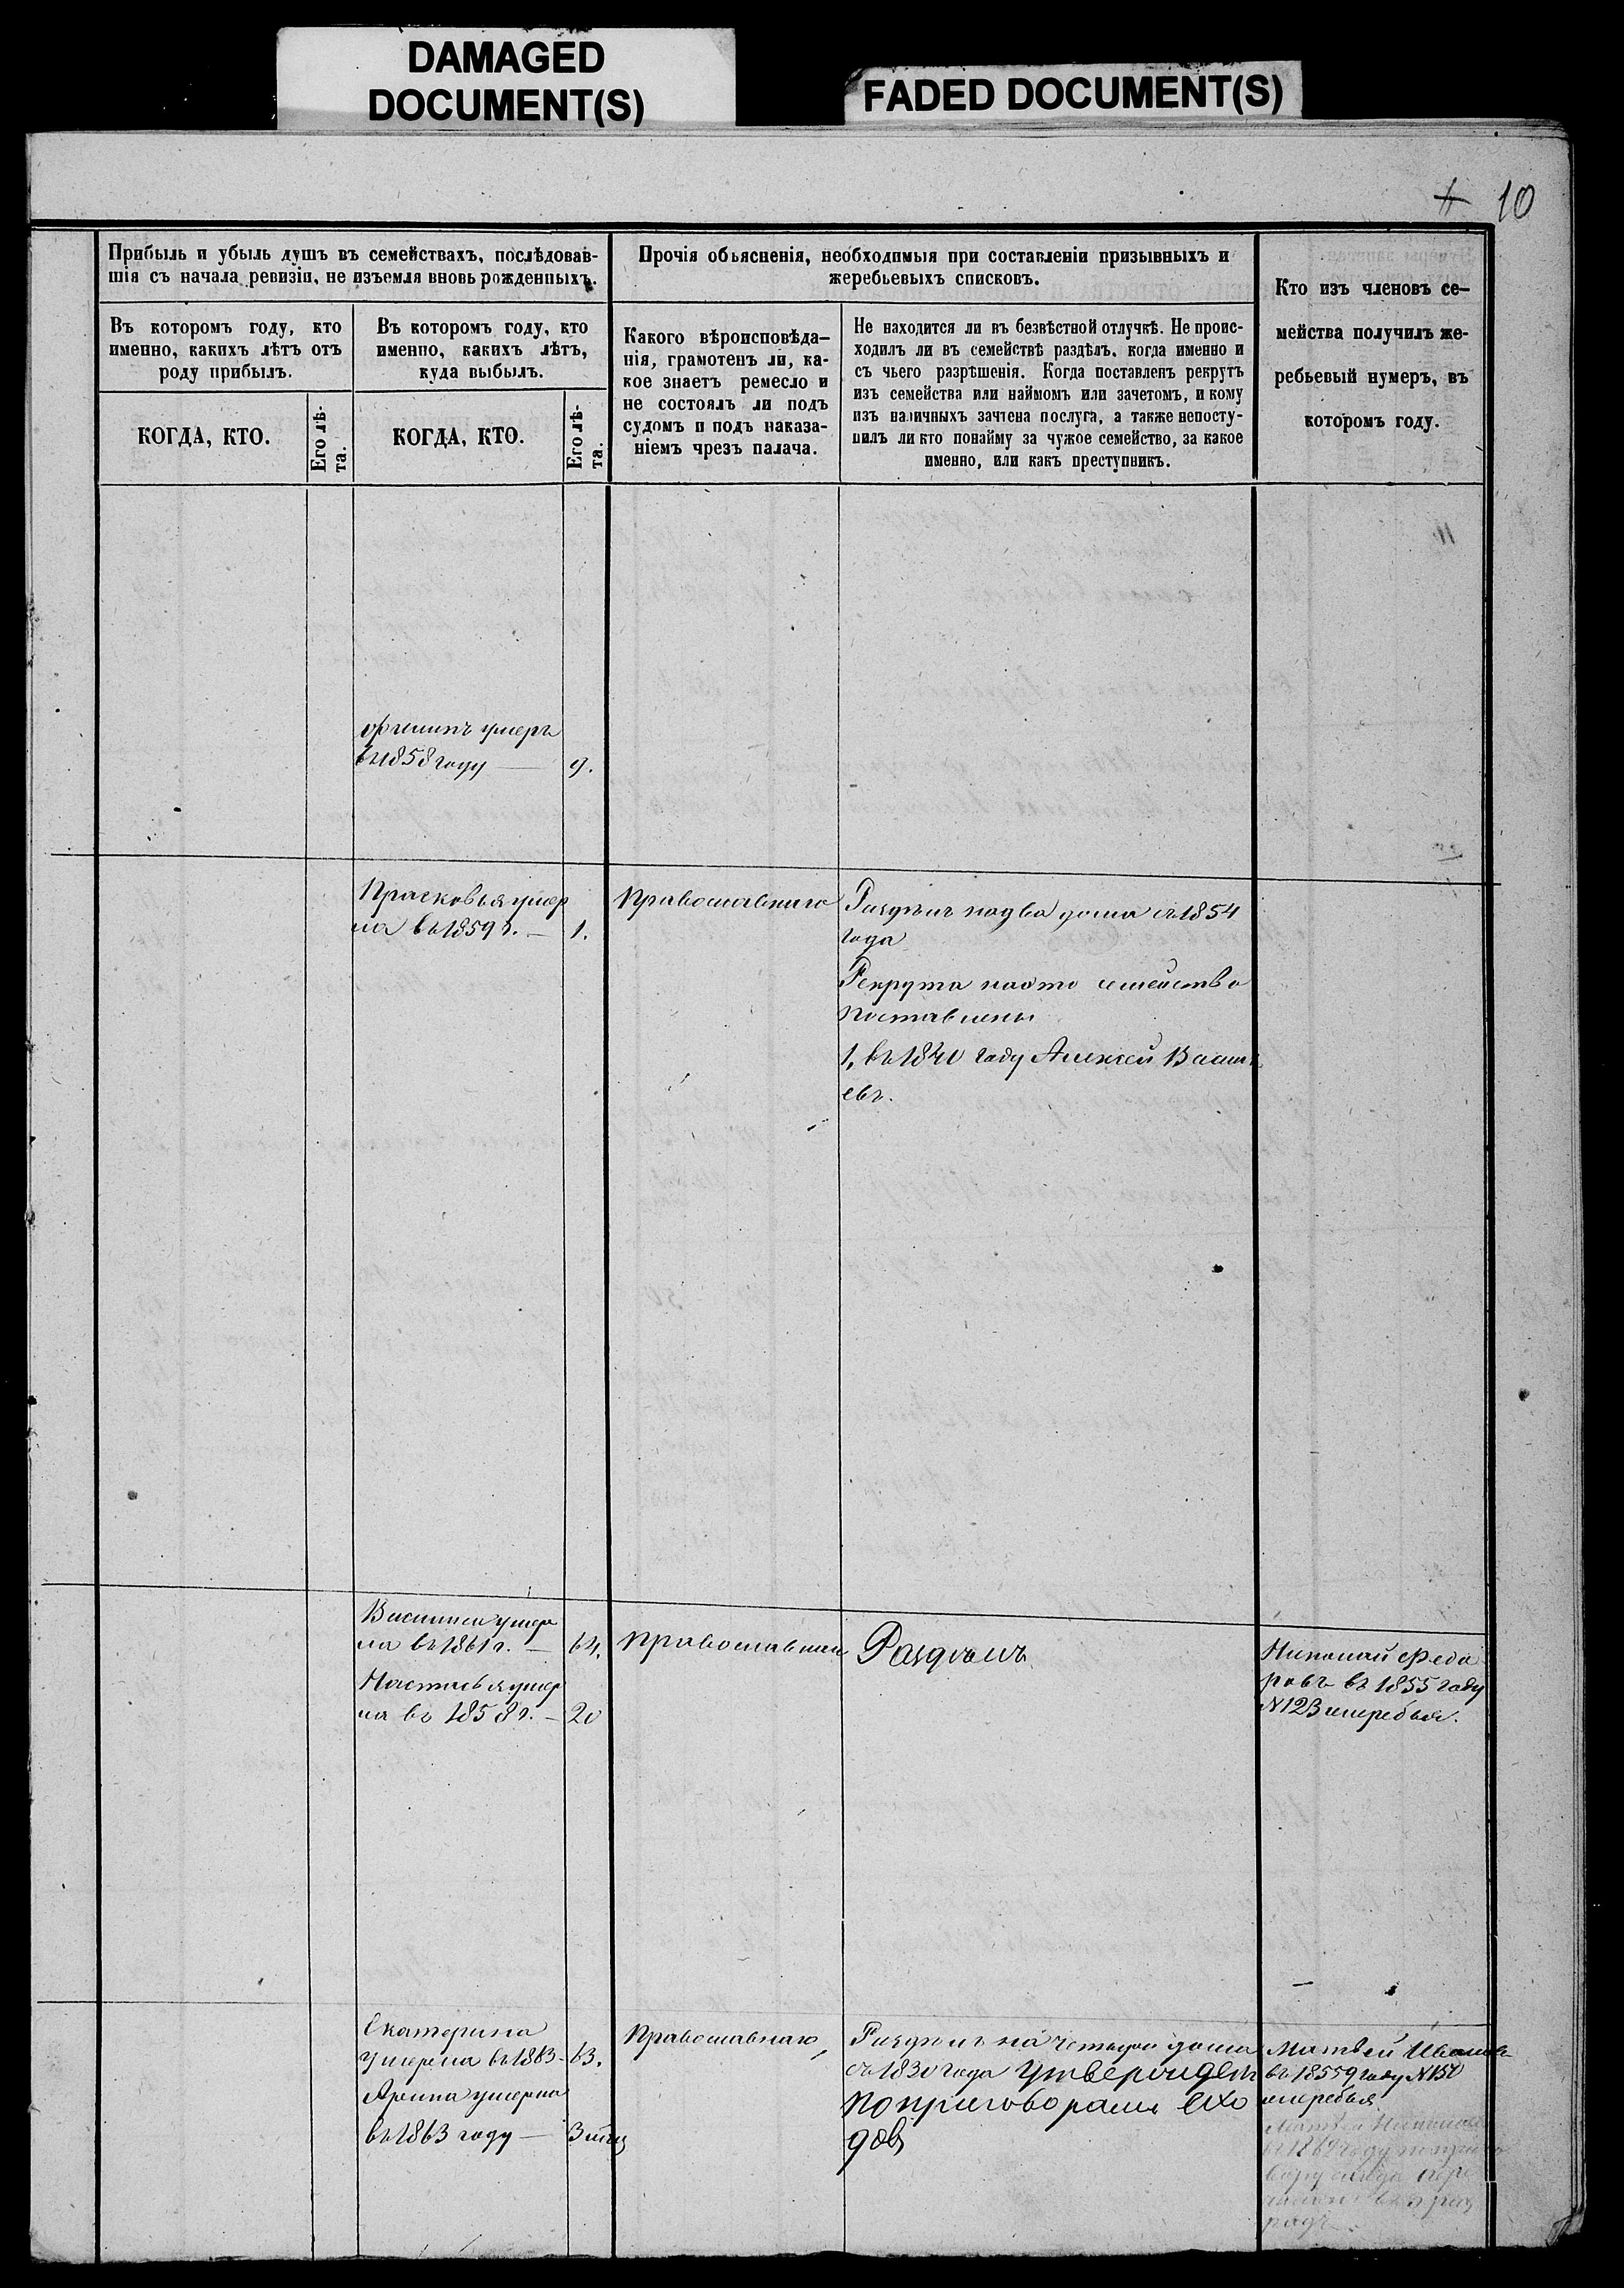 DAMAGED
DOCUMENT(S)
FADED DOCUMENT(S)
10
Прибыль и убыль душъ въ семействахъ, послѣдовав-
шія съ начала ревизіи, не изъемля вновь рожденныхъ.
Въ которомъ году, кто
именно, какихъ лѣтъ отъ
роду прибылъ.
КОГДА, КТО.
Его лѣ-
та.
Въ которомъ году, кто
именно, какихъ лѣтъ,
куда выбылъ.
КОГДА, КТО.
Его лѣ-
та.
Прочія обьясненія, необходимыя при составленіи призывныхъ и
жеребьевыхъ списковъ.
Какого вѣроисповѣда-
нія, грамотенъ ли, ка-
кое знаетъ ремесло и
не состоялъ ли подъ
судомъ и подъ наказа-
ніемъ чрезъ палача.
Не находится ли въ безвѣстной отлучкѣ. Не проис-
ходилъ ли въ семействѣ раздѣлъ, когда именно и
съ чьего разрѣшенія. Когда поставленъ рекрутъ
изъ семейства или наймомъ или зачетомъ, и кому
изъ наличныхъ зачтена послуга, а также непосту-
пилъ ли кто понайму за чужое семейство, за какое
именно, или какъ преступникъ.
Кто изъ членовъ се-
мейства получилъ же-
ребьевый нумеръ, въ
которомъ году.
Филипъ умеръ
въ 1858 году — 9.
Прасковья умер
ла въ 1859 г. — 1.
Православнаго
Раздѣлъ на два дома съ 1854
года
Рекрута по это семейство
поставлены
1, въ 1840 году Алексей Василь
евъ.
Василиса умер
ла въ 1861 г. — 64.
Настасья умер
ла въ 1858 г. — 20
Православнаго
Раздѣлъ
Николай Федо
ровъ въ 1855 году
№123 жеребья.
Екатерина
умерла въ 1863 — 63.
Арина умерла
въ 1863 году — 3 мѣц
Православнаго
Раздѣлъ на четыри дома
съ 1830 года утвержденъ
по приговорамъ схо
довъ
Матвей Ивановъ
въ 18559 году №150
жеребья